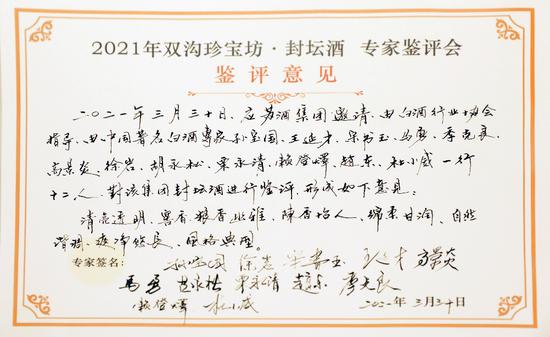 2021年双沟珍宝坊·封坛酒 专家鉴评会
鉴评意见
二〇二一年三月三十日，应苏酒集团邀请，由白酒行业协会
指导，由中国著名白酒专家孙宝国、王延才、宋书玉、马勇、季克良、
高景炎、徐岩、胡永松、栗永清、赖登燡、赵东、杜小威一行
十二人，对该集团封坛酒进行鉴评，形成如下意见：
清亮透明，窖香粮香幽雅，陈香怡人，绵柔甘润，自然
谐调，爽净悠长，风格典型。
专家签名：孙宝国 徐岩 宋书玉 王延才 高景炎
马勇 栗永清 赵东 季克良
赖登燡 杜小威 2021年3月30日